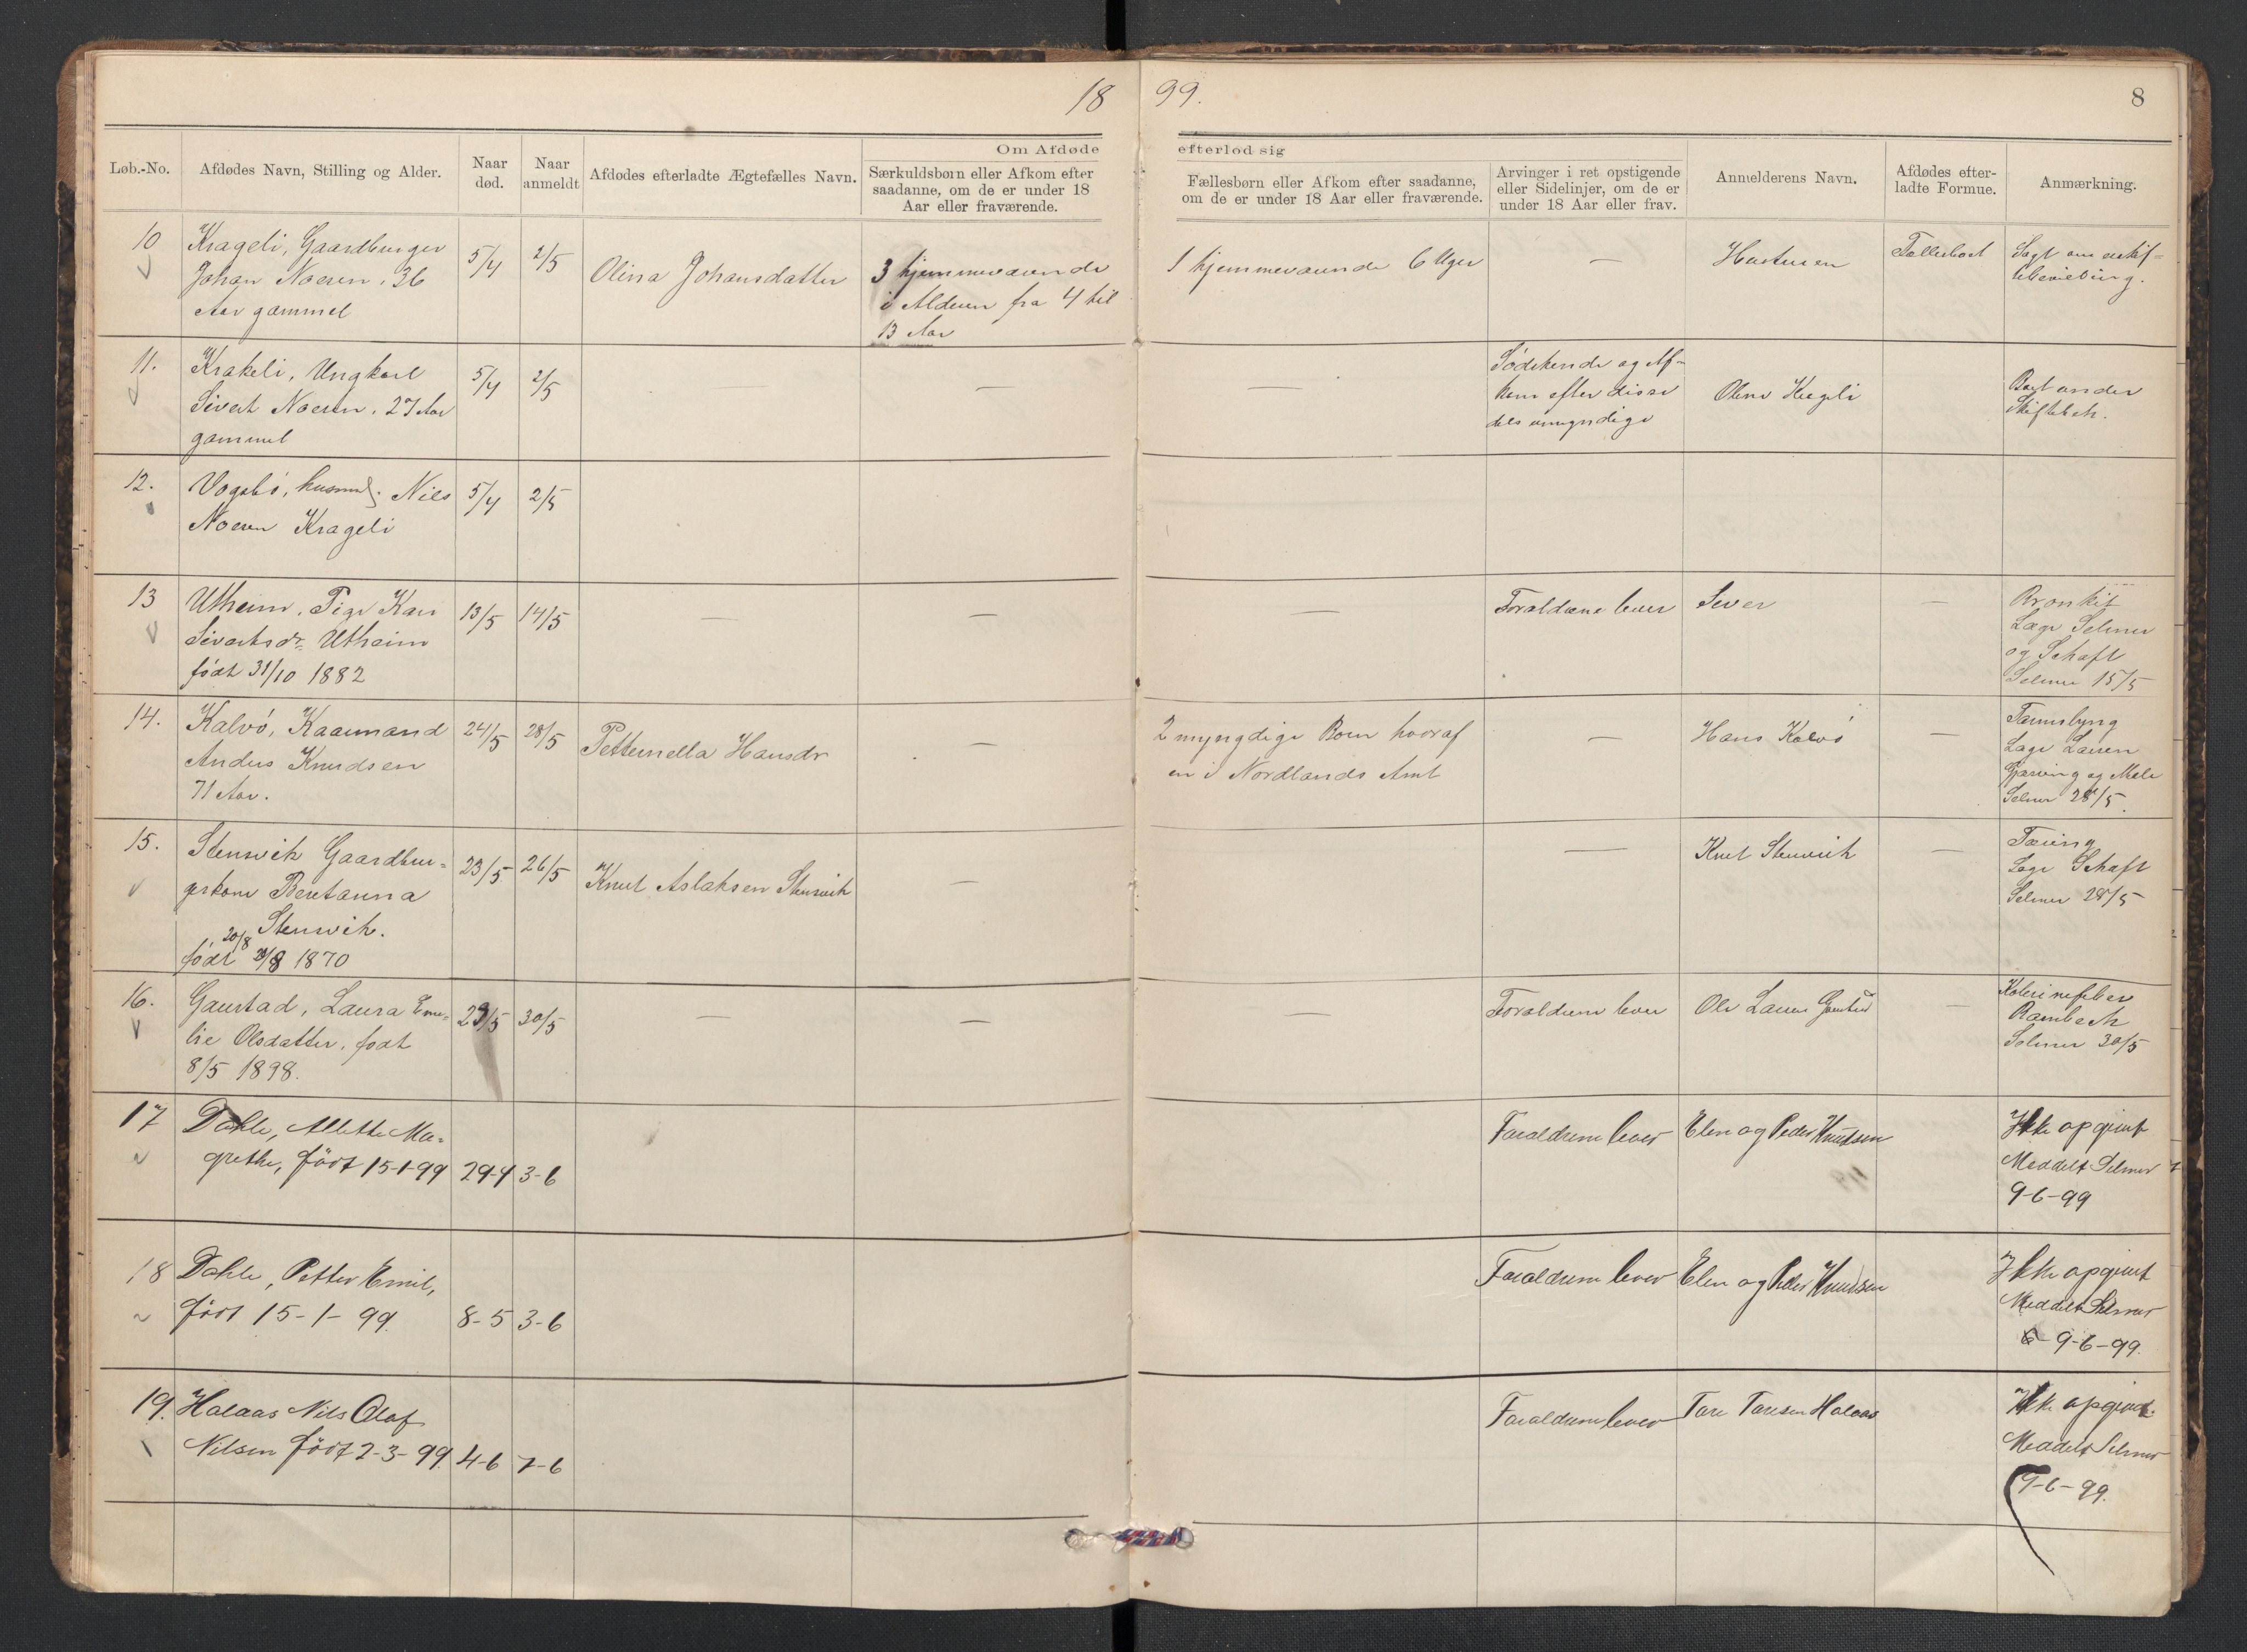 18 99.
8
Om Afdøde efterlod sig
Løb.-No.
Afdødes Navn, Stilling og Alder.
Naar død.
Naar anmeldt
Afdødes efterladte Ægtefælles Navn.
Særkuldsbørn eller Afkom efter
saadanne, om de er under 18
Aar eller fraværende.
Fællesbørn eller Afkom efter saadanne,
om de er under 18 Aar eller fraværende.
Arvinger i ret opstigende
eller Sidelinjer, om de er
under 18 Aar eller frav.
Anmelderens Navn.
Afdødes efter-
ladte Formue.
Anmærkning.
10
Krageli, Gaardbruger
Johan Noesen, 36
Aar gammel
5/4
2/5
Olina Johansdatter
3 hjemmeværende
i Alderen fra 4 til
13 Aar
1 hjemmeværende 6 Uger
—
Hustruen
11.
Krakeli, Ungkarl
Sivert Noesen, 27 Aar
gammel
5/4
2/5
—
—
—
Södskende og Af-
kom efter disse
dels umyndige
Olene
12.
Nils
Noesen Krageli
5/4
2/5
13
Utheim, Pige Kari
Sivertsdr Utheim
född 31/10 1882
13/5
14/5
—
—
—
Forældrene lever
—
Bronkit
Læge Selmer
og Schaft
Selmer 15/5
14.
Kalvö, Kaarmand
Anders Knudsen
71 Aar.
24/5
28/5
Petternella Hansdr
—
2 myngdige Börn hvoraf
en i Nordlands Amt
—
Hans Kalvö
—
Selmer 28/5.
15.
Stenwik Gaardbru-
gerkone Berntanna
Stenwik.
20/8
född 1870
23/5
26/5
Knut Aslaksen Stenwik
—
—
Knut Stenwik
—
Tæring
Læge Schaft
Selmer 28/5
16.
Gaustad, Laura Eme-
lie Olsdatter, född
8/5 1898.
29/5
30/5
—
—
—
Forældrene lever
—
Rambech
Selmer 30/5
17
Dahle, Allette Ma-
grethe, född 15-1-99
29-4
3-6
Forældrene lever
Elen og Peder Knutsen
Ikke opgivet
Meddelt Selmer
9-6-99
18
Dahle, Petter Emil,
född 15-1-99
8-5
3-6
Forældrene lever
Elen og Peder Knutsen
Ikke opgivet
Meddelt Selmer
9-6-99.
19.
Halaas Nils Olaf
Nilsen född 2-3-99.
4-6
7-6
Forældrene lever
Tore Toresen Halaas
Ikke opgivet
Meddelt Selmer
9-6-99.